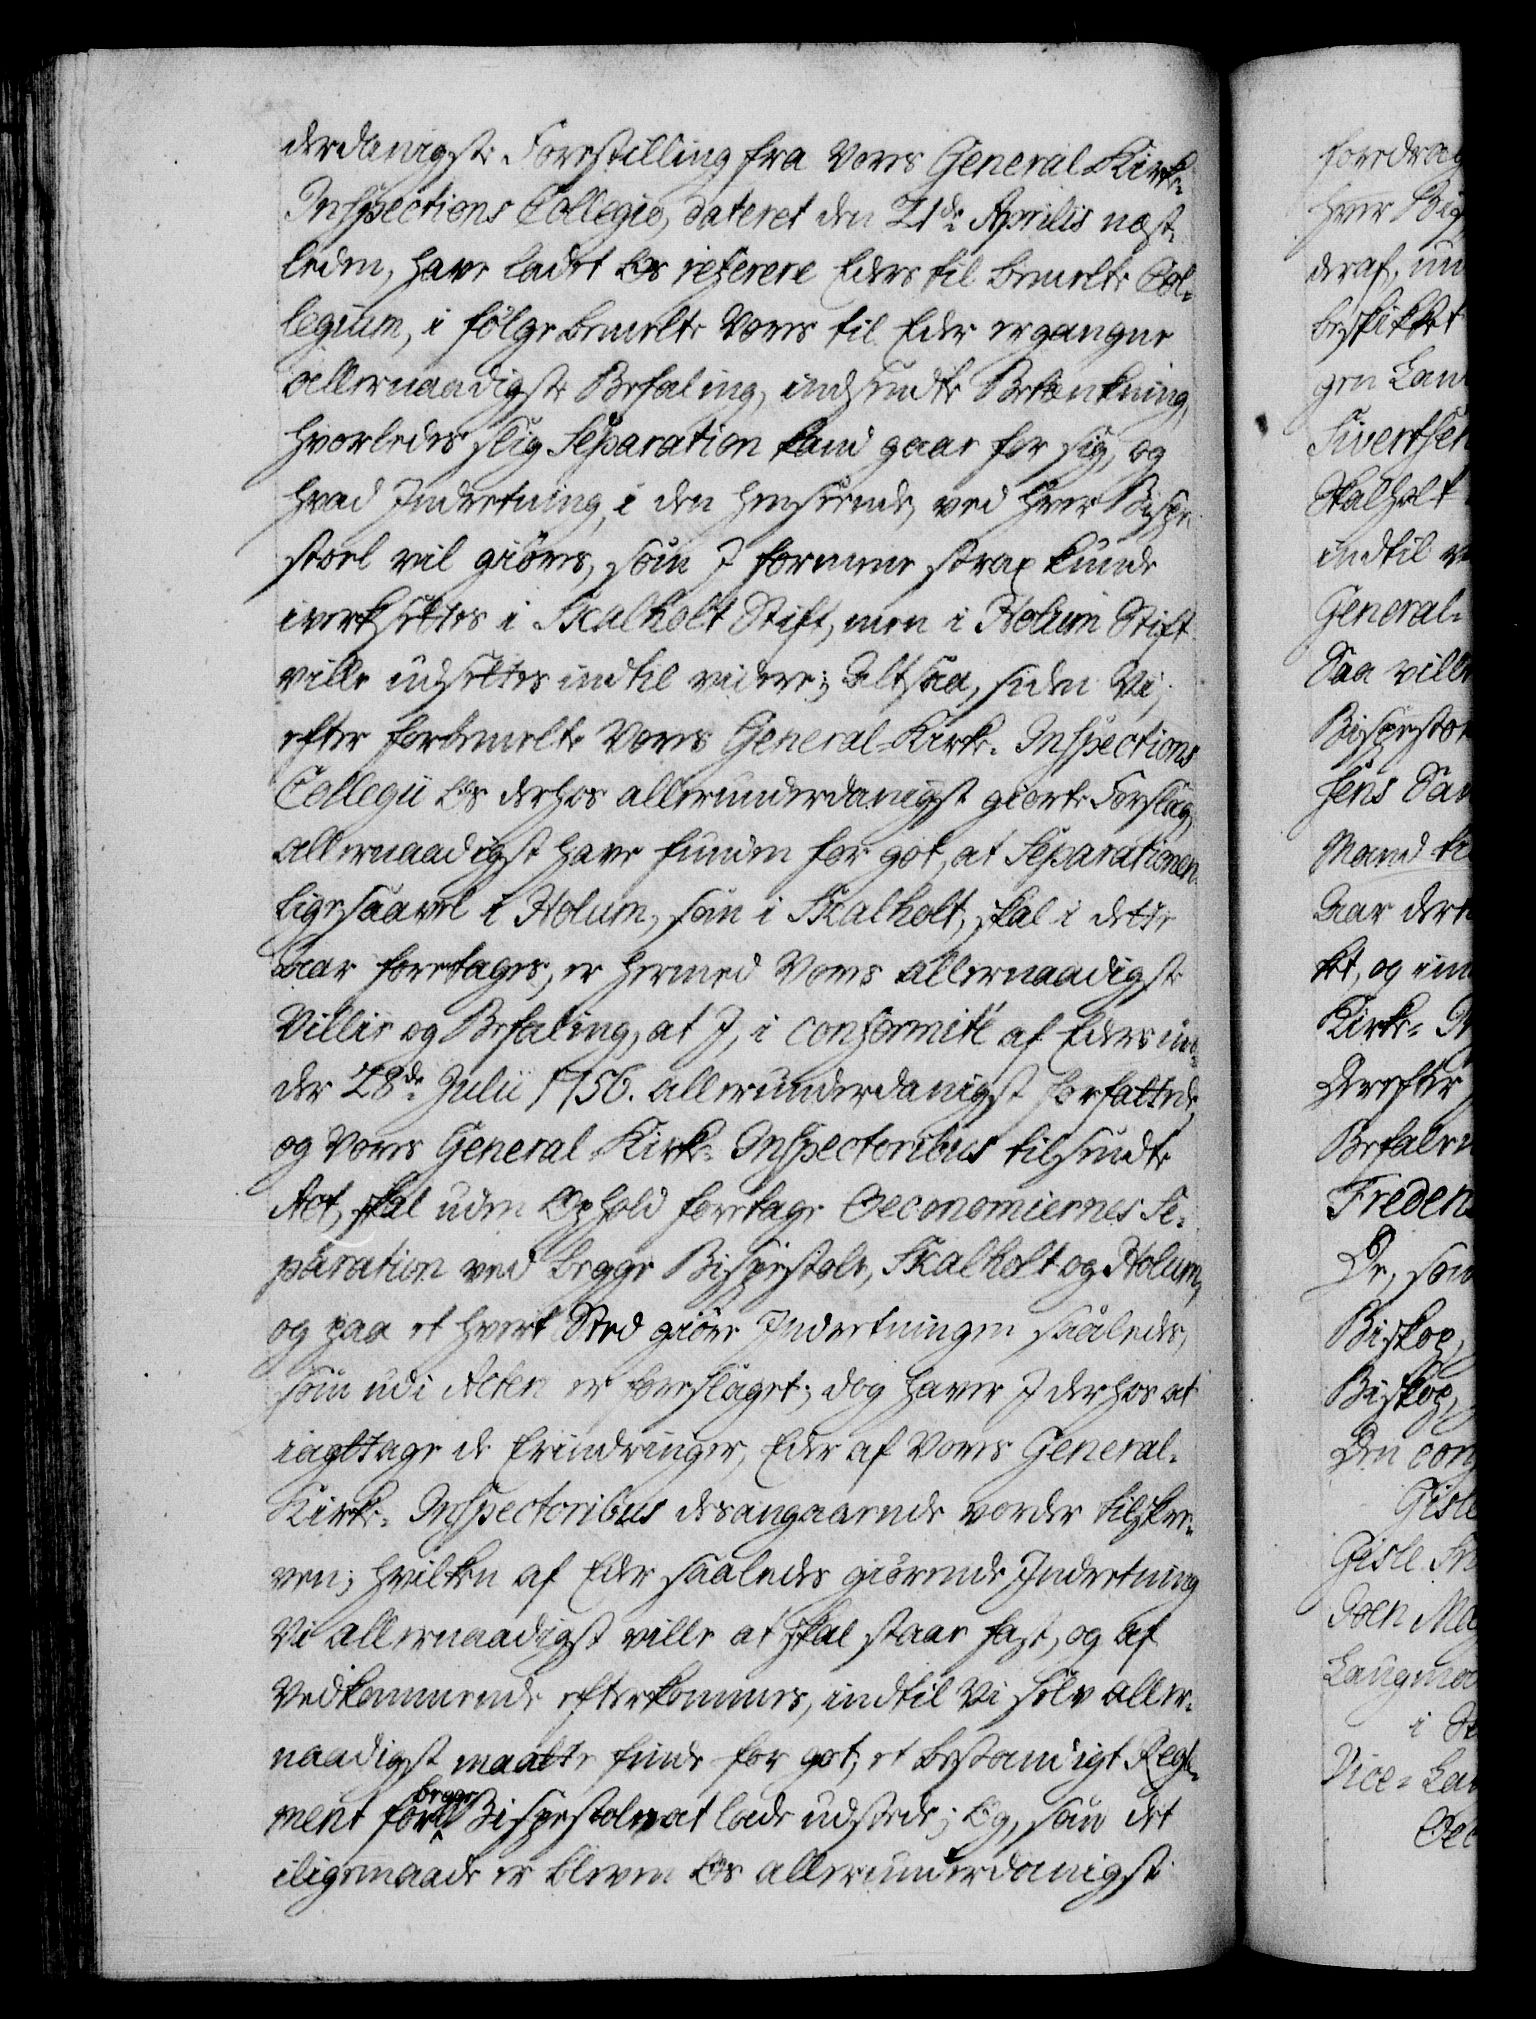 derdanigste Forestilling fra Vores General Kirke-
Inspections Collegio, dateret den 21de Aprilis næst-
leden, have ladet Os referere Eders til bemelte Col-
legium, i følge bemelte Vores til Eder ergangne
allernaadigste Befaling, indsendte Betænkning,
hvorledes slig Separation kand gaae for sig, og
hvad Indretning, i den henseende, ved hver Bispe-
stoel vil giøres, som I formene strax kunde
iverksettes i Skalholt Stift, men i Holum Stift
ville udsettes indtil videre; Altsaa, siden Vi,
efter forbemelte Vores General-Kirke-Inspections
Collegii Os derhos allerunderdanigst giorte Forslag,
allernaadigst have funden for got, at Separationen
ligesaavel i Holum, som i Skalholt, skal i dette
Aar foretages, er hermed Vores allernaadigste
Villie og Befaling, at I, i conformité af Eders un-
der 28de Julii 1756. allerunderdanigst forfattede,
og Vores General-Kirke-Inspectoribus tilsendte
Act, skal uden Ophold foretage Oeconomiernes Se-
paration ved begge Bispestole, Skalholt og Holum,
og paa et hvert Sted giøre Indretningen saaledes,
som udi Acten er foreslaget; dog haver I derhos at
iagttage de Erindringer, Eder af Vores General-
Kirke-Inspectoribus desangaaende vorder tilskre-
ven; hvilken af Eder saaledes giørende Indretning
Vi allernaadigst ville at skal staae fast, og af
Vedkommende efterkommes, indtil Vi selv aller-
naadigst maatte finde for got, et bestandigt Regle-
ment for begge Bispestolene at lade udstede; Og, som det
iligemaade er bleven Os allerunderdanigst
foredrag
hver Bisp
deraf, un
beskikket
gen Lan
Sivertsen
Skalholt
indtil v
General-
Saa ville
Bispestol
sens San
Mand til
Aar dert
let, og im
Kirke-In
Derefter
Befalen
Fredens
De, som
Biskop,
Biskop,
Den cong
Gisle
Gisle
Soen Mag
Laugman
i St
Vice-Lau
Oec